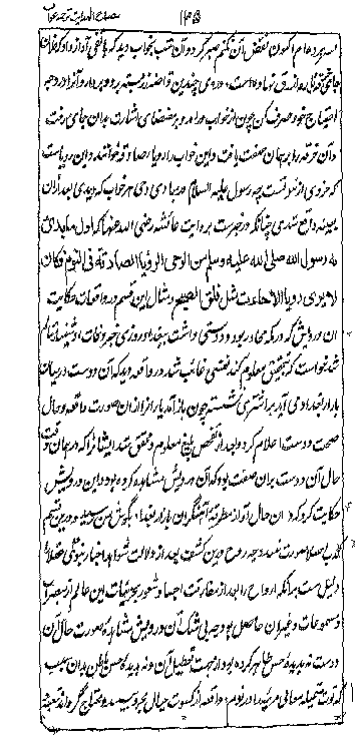 ۱۴۵
سپرده ام اکنون نقض آن نکنم صبر کرد و آن شب بخواب دید که هاتفی آواز داد که فلان
خرقه پاره ازرق نهاده است و در وی چندین قراضه زر بسته برو و بردار و آنرا در وجه
احتیاج خود صرف کن چون از خواب درآمد و بر مقتضای اشارت بدان جای رفت
و آن خرقه را بر همان صفت یافت و این خواب را رویا صادقه خوانند و این رویاست
که جزوی از نبوتست چه رسول علیه السلام در مبادی وحی هر خواب که دیدی بعد ازان
بعینه واقع شدی چنانکه در خبرست بروایت عائشه رضی الله عنها که اول ما بدئ
به رسول الله صلی الله علیه وسلم من الوحی الرویا الصادقة فی النوم فکان
لا یری رویا الا جاءت مثل فلق الصبح و مثال این قسم در واقعات حکایت
آن درویش که در مکه مجاور بود و دوستی داشت ببغداد روزی خبر وفات او شنید متالم
شد خواست که بتحقیق معلوم کند نفسی غائب شد در واقعه دید که آن دوست در میان
بازار بغداد می آید بر اشتری نشسته چون باز آمد یارانرا ازان صورت واقعه و حال
صحت دوست اعلام کرد و بعد از تفحص بلیغ معلوم و محقق شد ایشانرا که در همان وقت
حال آن دوست بران صفت بود که آن درویش مشاهده کرده بود و این درویش
حکایت کرد که در آن حال آواز مطرقه آهنگران بازار بغداد بگوش من رسید و درین قسم
صورت نبندد چه روح درین کشف بعد از دلالت شواهد اخبار نبوی عقلا
دلیل است برآنکه ارواح را بعد از مفارقت اجساد شعور بجزئیات این عالم از مبصرات
و مسموعات و غیر آن حاصل بود چه بی شک آن درویش مشاهده صورت حال آن
دوست نه بدیده حس ظاهر کرده بود از جهت تعطیل آن و نه بدیده حس باطن بدان سبب
که قوت متخیله معانی مرئیه را در نوم و واقعه از کسوت خیال مجرد نبیند و محتاج